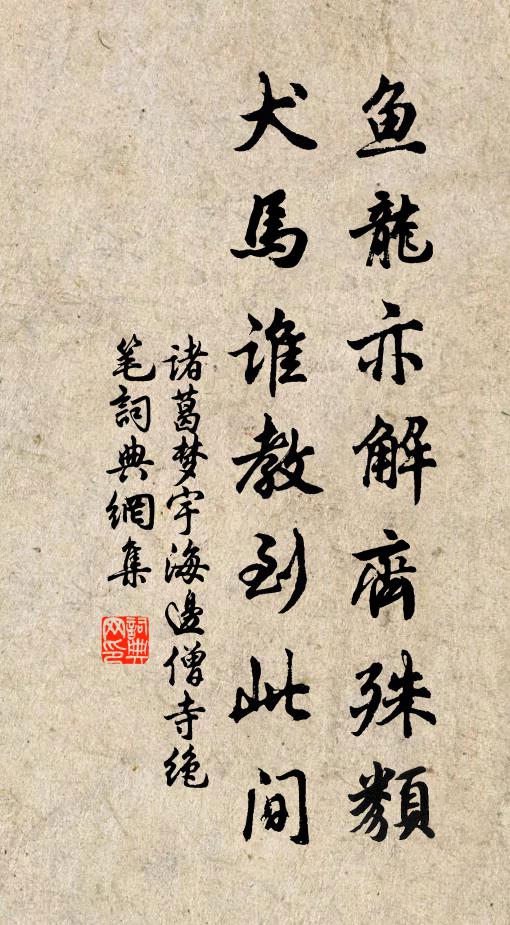 鱼龍亦解齊殊類
犬馬誰教到此间
诸葛梦宇海邊僧寺绝
笔詞典網集
詞典网印